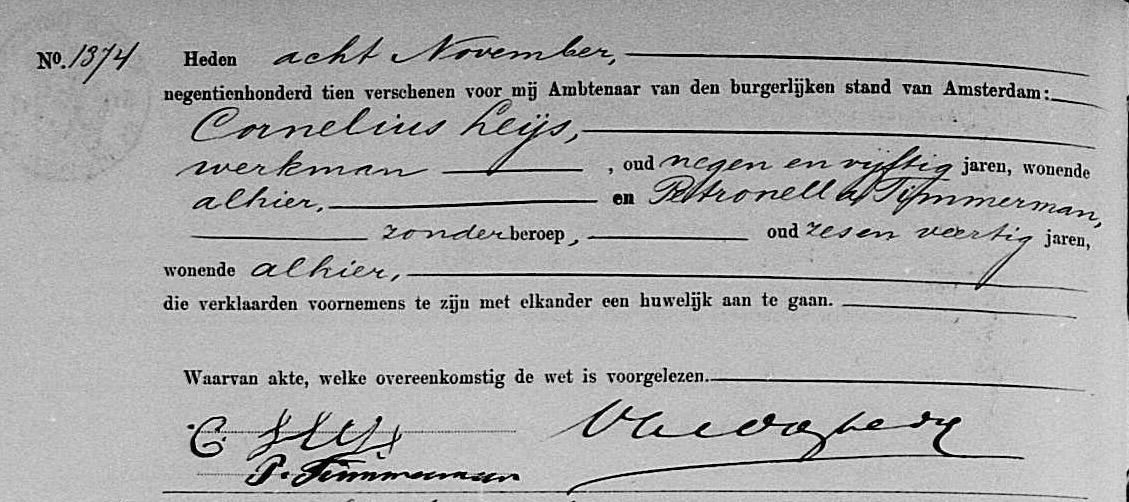 No. 1374 Heden acht November,
negentienhonderd tien verschenen voor mij Ambtenaar van den burgerlijken stand van Amsterdam:
Cornelius Leijs,
werkman, oud negen en vijftig jaren, wonende
alhier, en Petronella Timmerman,
zonder beroep, oud zes en veertig jaren,
wonende alhier,
die verklaarden voornemens te zijn met elkander een huwelijk aan te gaan.
Waarvan akte, welke overeenkomstig de wet is voorgelezen.
C
P. Timmerman